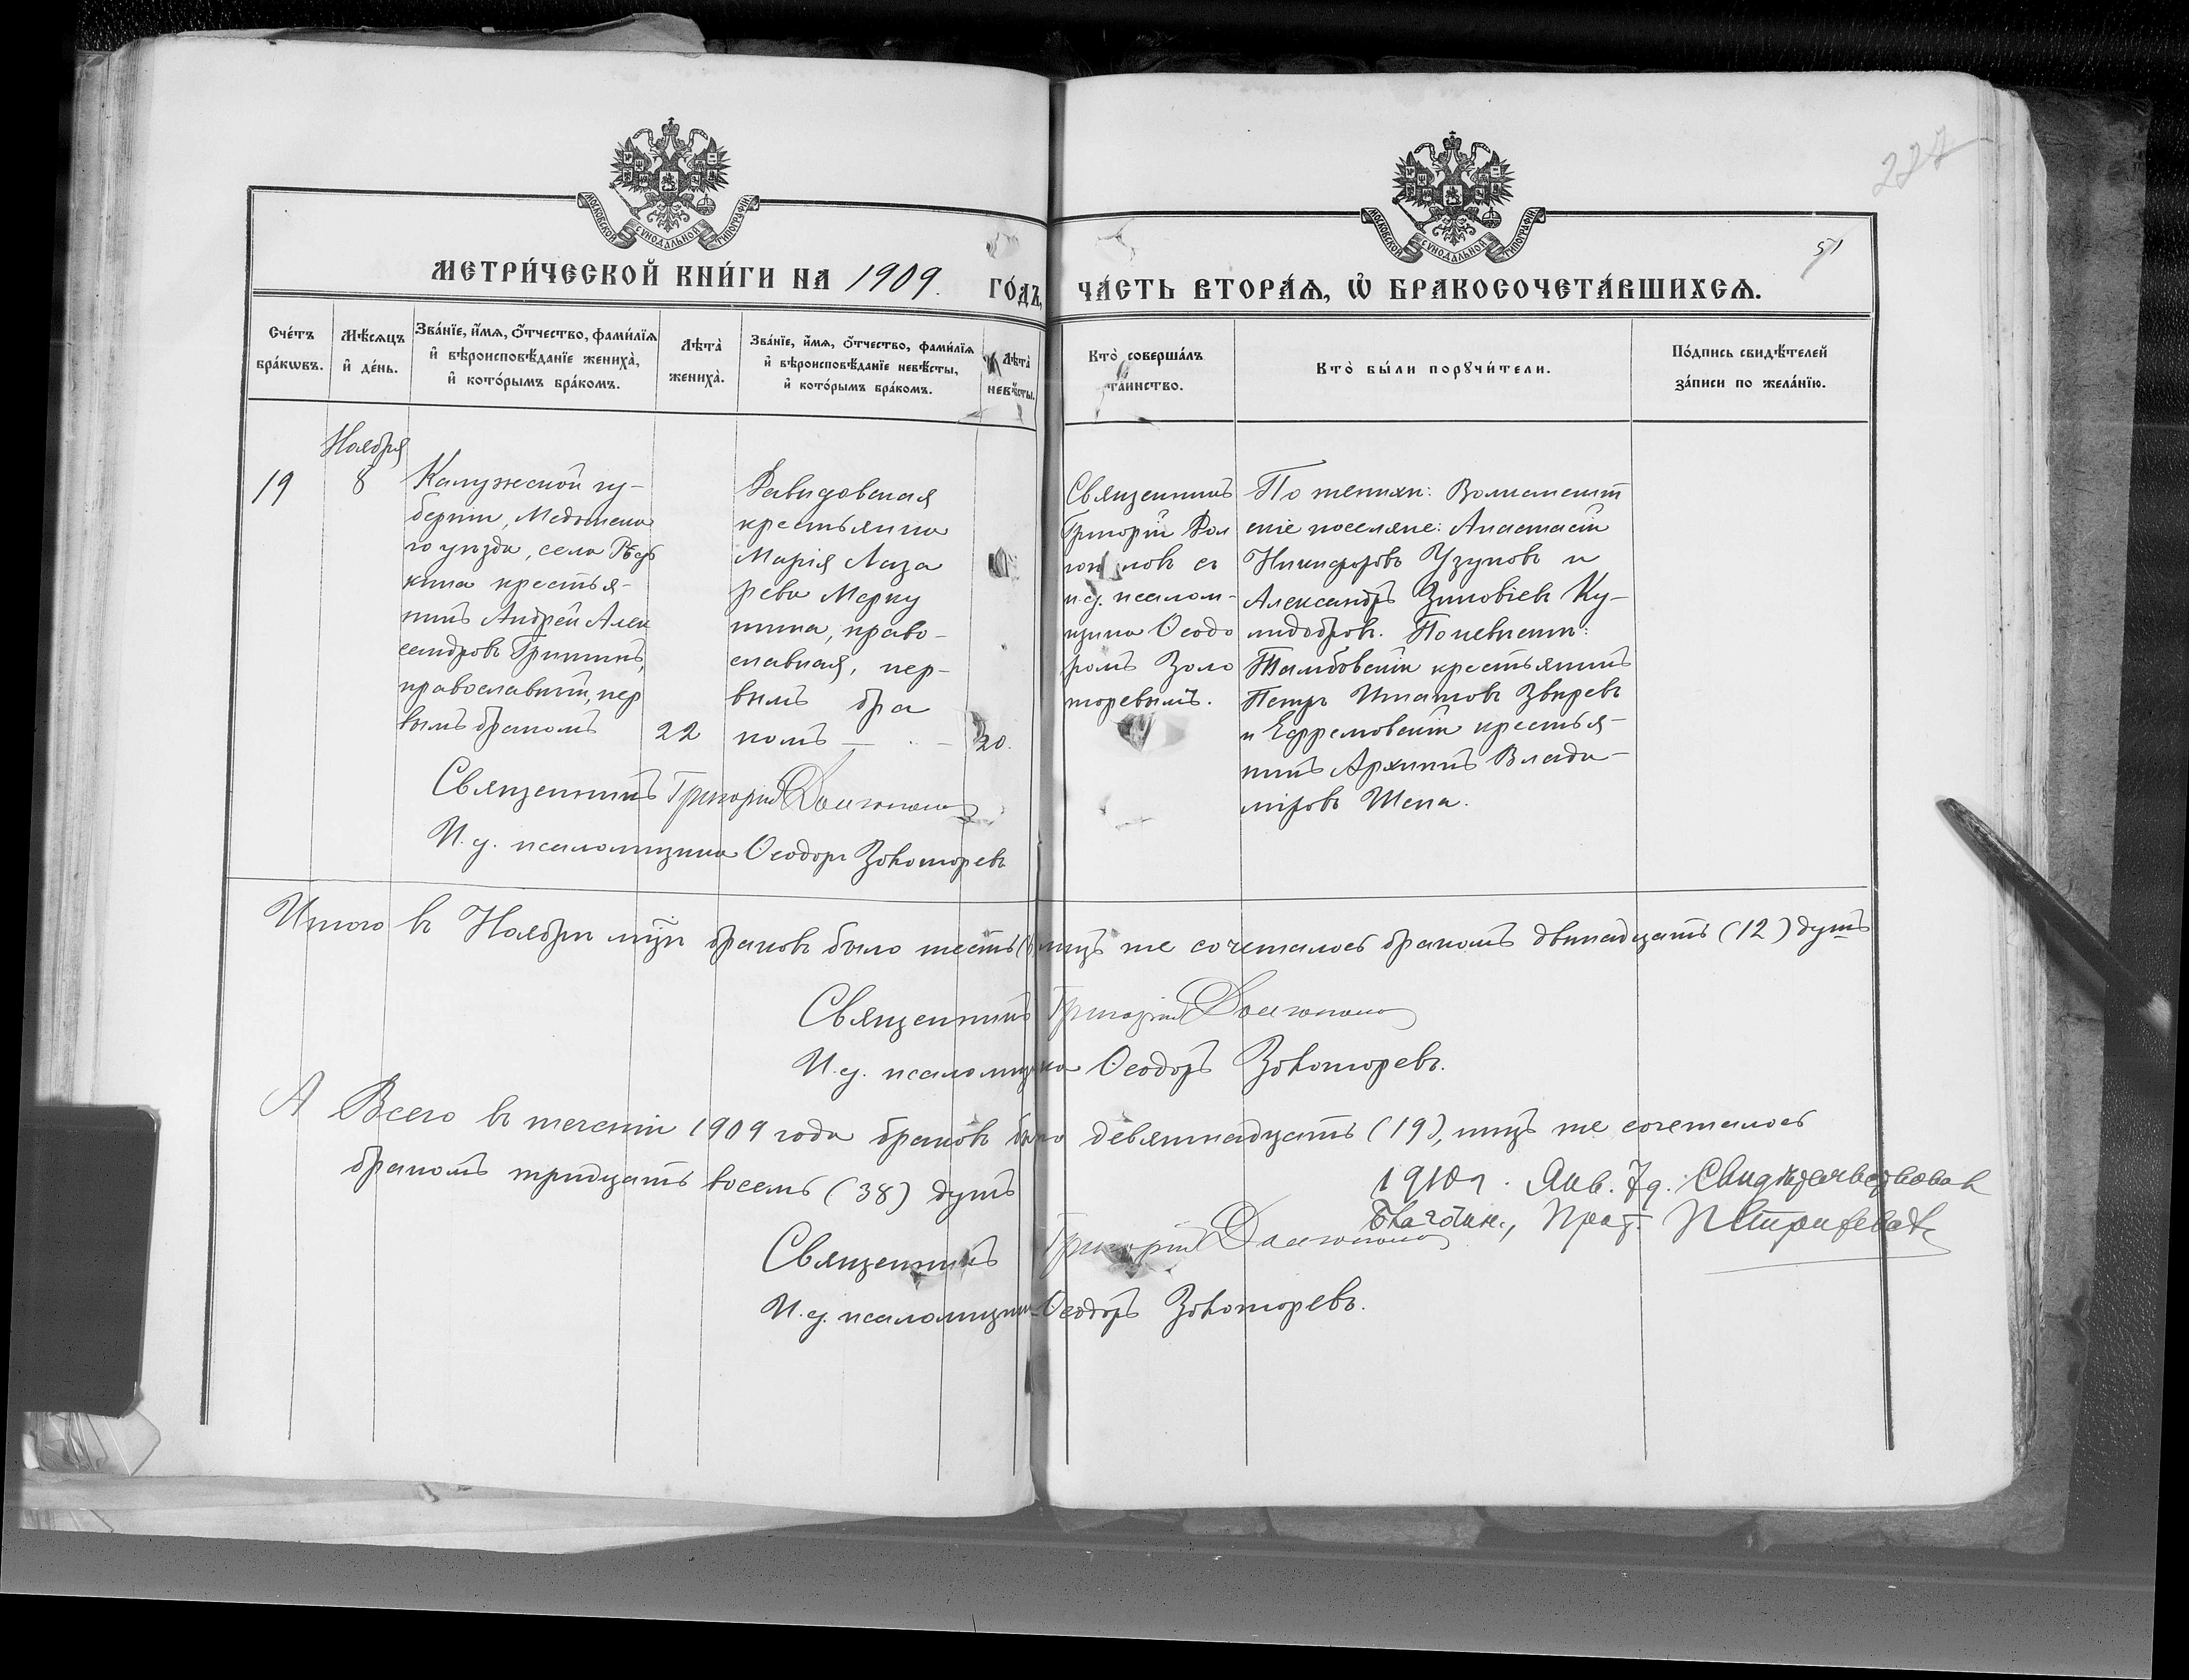 227
МОСКОВСКОЙ СѴНОДАЛЬНОЙ ТИПОГРАФІИ
МОСКОВСКОЙ СѴНОДАЛЬНОЙ ТИПОГРАФІИ
51
МЕТРИ́ЧЕСКОЙ КНИ́ГИ НА 1909. ГО́ДЪ, ЧА́СТЬ ВТОРА́Ѧ, Ѡ҆ БРАКОСОЧЕТА́ВШИХСѦ.
Сче́тъ
бра́кѡвъ.
Мѣ́сѧцъ
и҆ де́нь.
Зва́нїе, и҆́мѧ, ѻ҆́тчество, фами́лїѧ
и҆ вѣроисповѣ́данїе жениха̀,
и҆ кото́рымъ бра́комъ.
Лѣта̀
жениха̀.
Зва́нїе, и҆́мѧ, ѻ҆́тчество, фами́лїѧ
и҆ вѣроисповѣ́данїе невѣ́сты,
и҆ кото́рымъ бра́комъ.
Лѣта̀
невѣ́сты.
Кто̀ соверша́лъ
та́инство.
Кто̀ бы́ли порꙋчи́тели.
По́дпись свидѣ́телей
за́писи по жела́нїю.
Ноября
19
8
Калужской гу-
берніи, Медынска
го уѣзда, села Рѣдь
кина крестья-
нинъ Андрей Алек
сандровъ Гришинъ,
православный, пер
вымъ бракомъ
22
Давидовская
крестьянка
Марія Лаза
рева Мерку
шина, право-
славная, пер-
вымъ бра
комъ — . –
20.
Священникъ
Григорій Дол
гополовъ съ
и.д. псалом-
щика Ѳеодо
ромъ Золо
торевымъ.
По женихѣ:
поселяне: Анастасій
Никифоровъ Узуновъ и
Александръ Зиновіевъ Ку-
лидобровъ. По невѣстѣ:
Тамбовскій крестьянинъ
Петръ Игнатовъ Звѣревъ
и Ефремовскій крестья-
нинъ Архипъ Влади-
міровъ Шепа.
Священникъ Григорій Долгополовъ
И.д. псаломщика Ѳеодоръ Золоторевъ
Итого въ Ноябрѣ м҃цѣ браковъ было шесть (6) лицъ же сочеталось бракомъ двѣнадцать (12) душъ
Священникъ Григорій Долгополовъ
И.д. псаломщика Ѳеодоръ Золоторевъ.
А Всего въ теченіи 1909 года браковъ было девятнадцать (19), лицъ же сочеталось
бракомъ тридцать восемь (38) душъ
1910 г. Янв. 7 д. Свидѣтельствовалъ
Благочин., Прот.
Священникъ Григорій Долгополовъ
И.д. псаломщика Ѳеодоръ Золоторевъ.